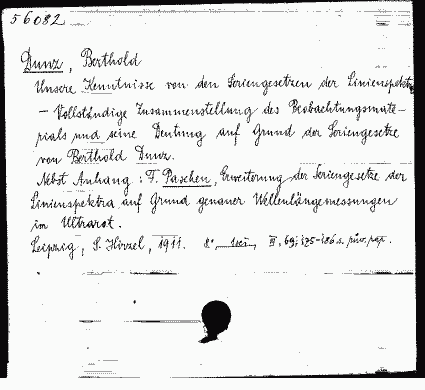 56082
Dunz, Berthold
Unsere Kenntnisse von den Seriengesetzen der Linienspektra
– Vollständige Zusammenstellung des Beobachtungsmate-
rials und seine Deutung auf Grund der Seriengesetze
von Berthold Dunz.
Nebst Anhang: F. Paschen, Erweiterung der Seriengesetze der
Linienspektra auf Grund genauer Wellenlängemessungen
im Ultrarot.
Leipzig, S. Hirzel, 1911. 8° III, 69; 175-186 s.